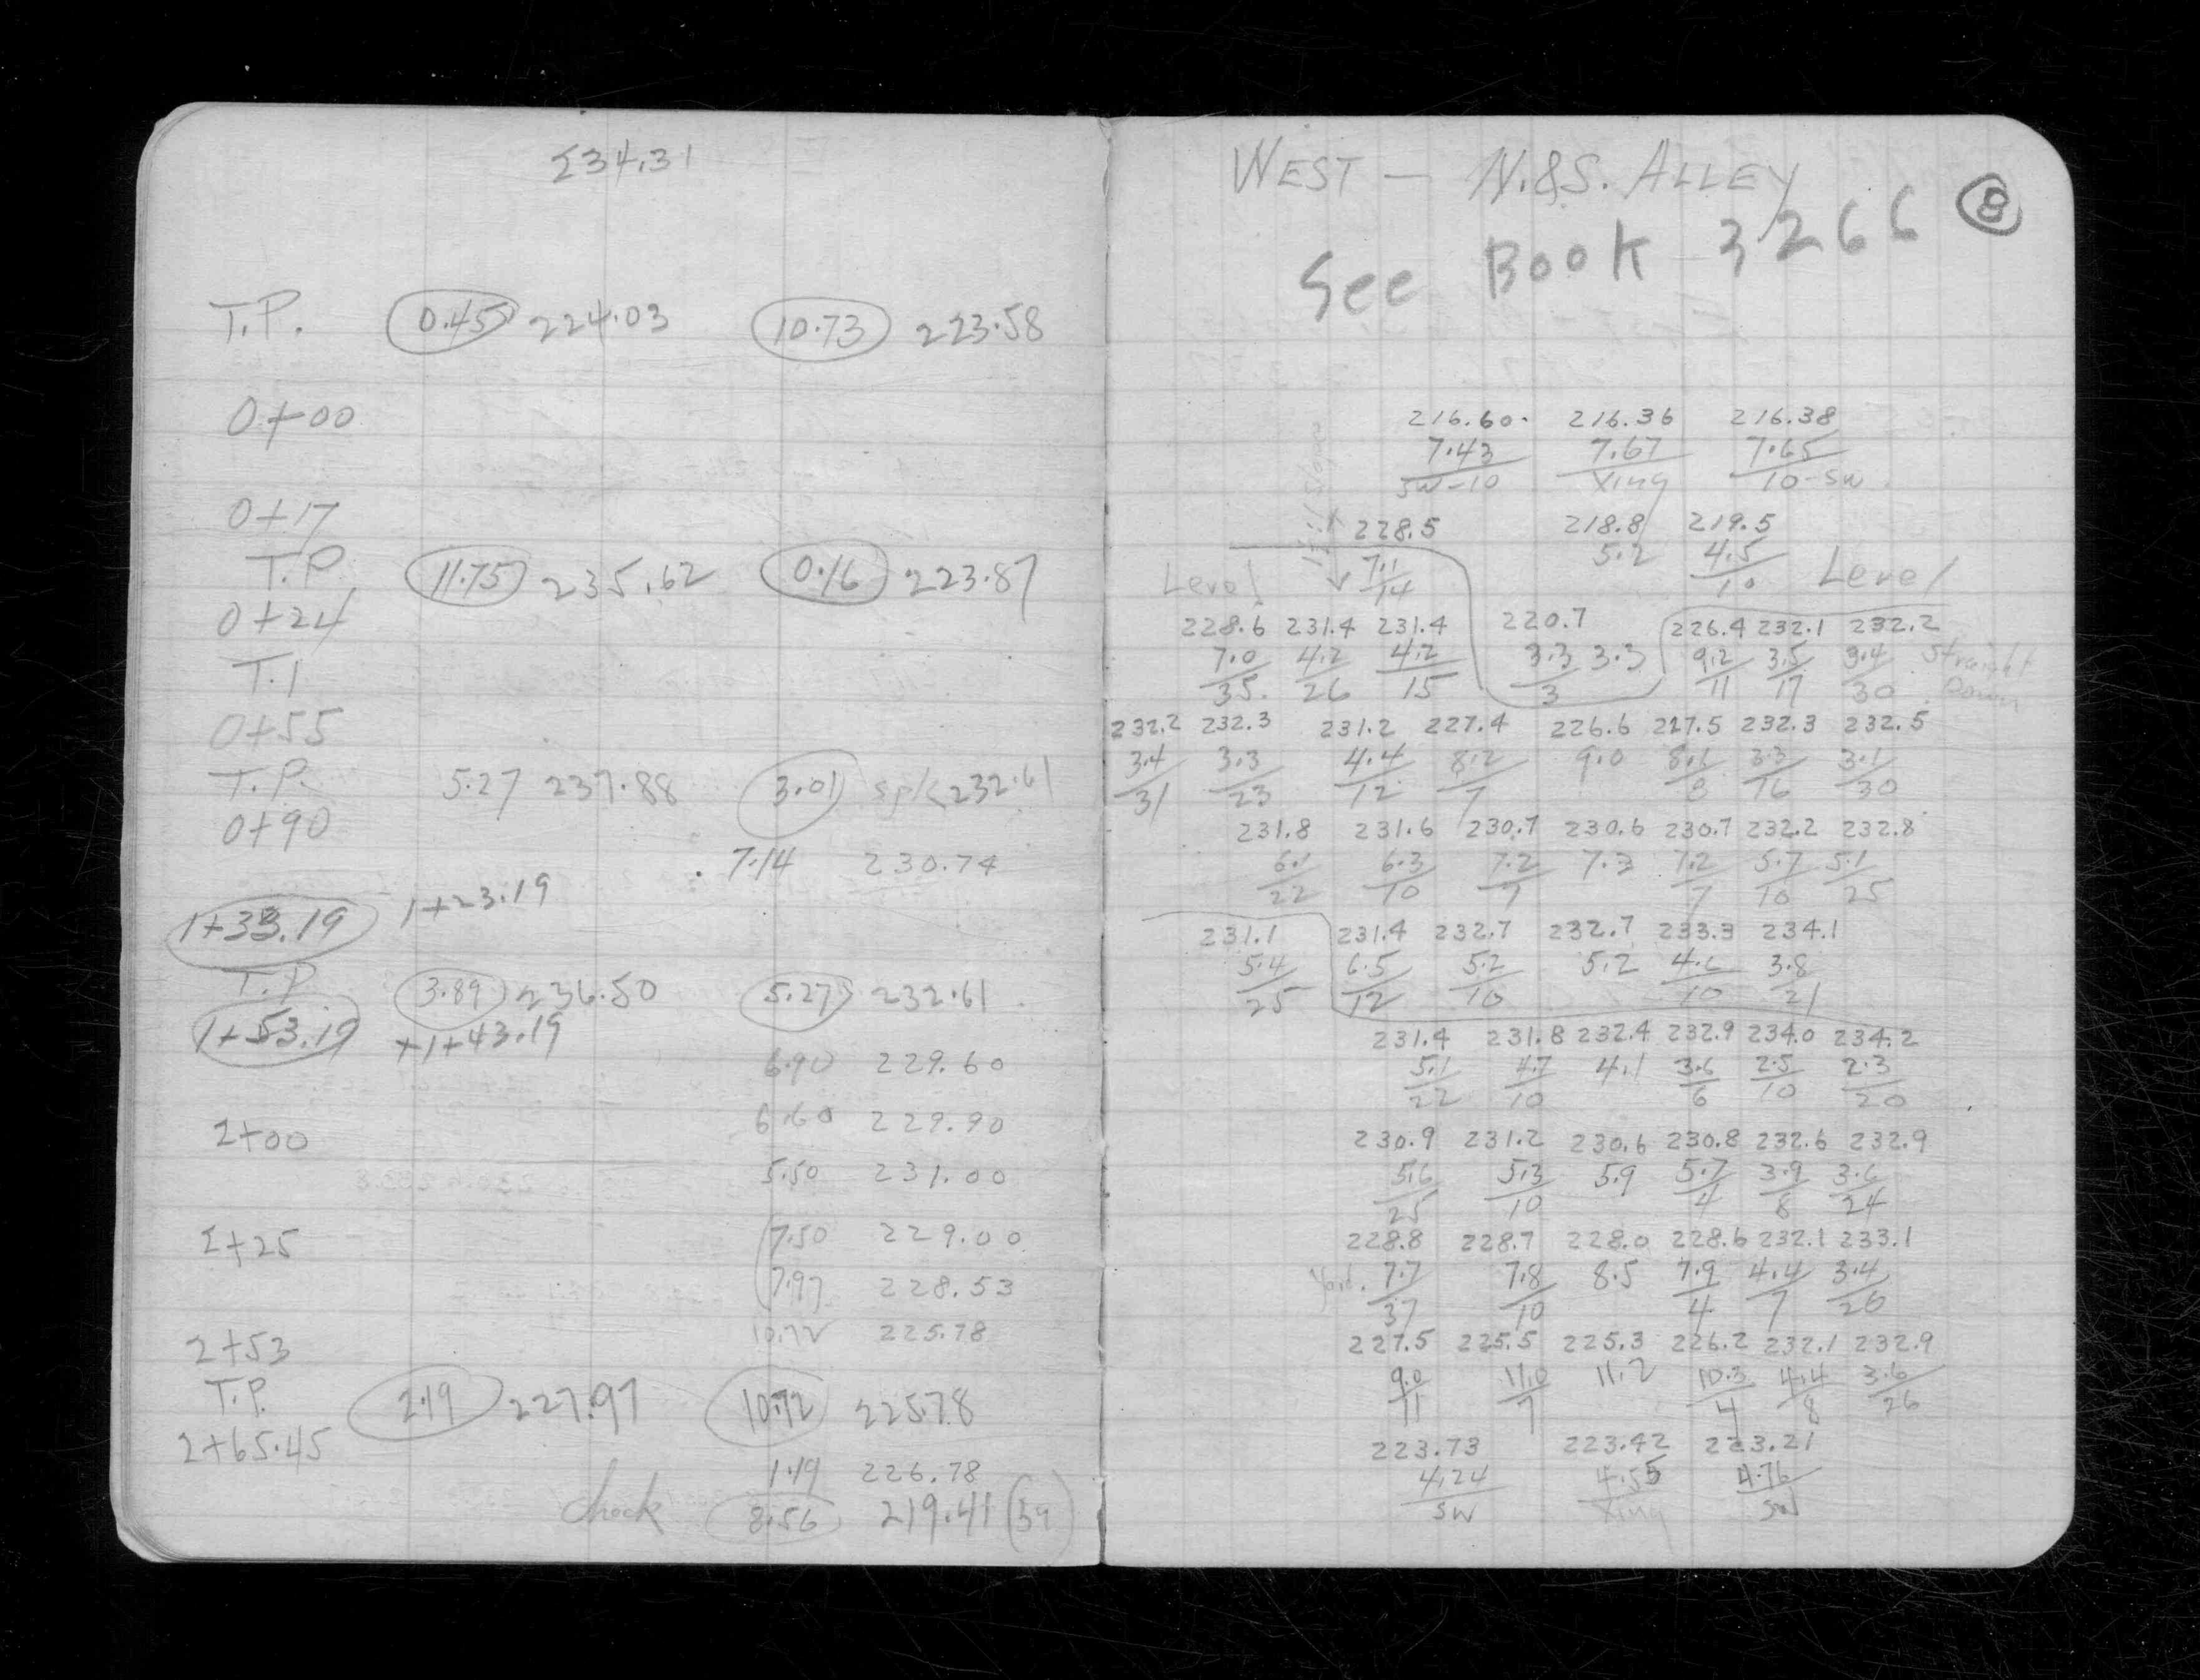 234.31
T.P. 0.45 224.03 10.73 223.58
0+00
0+17
T.P. 11.75 235.62 0.16 223.87
0+24
T.1
0+55
T.P. 5.27 237.88 3.01 spk 232.61
0+90
7.14 230.74
1+33.19 1+23.19
T.P. 3.89 236.50 5.27 232.61
1+53.19 +1+43.19
6.90 229.60
6.60 229.90
2+00
5.50 231.00
2+25 7.50 229.00
7.97 228.53
10.72 225.78
2+53
T.P. 2.19 227.97 10.72 225.78
2+65.45
1.19 226.78
check 8.56 219.41 (39)
WEST — N.&S. ALLEY
See BOOK 3266 8
216.60 216.36 216.38
7.43 7.67 7.65
SW-10 Xing 10-SW
228.5 218.8 219.5
7.1 5.2 4.5
14 10
Level Level
228.6 231.4 231.4 220.7 226.4 232.1 232.2
7.0 4.2 4.2 3.3 3.3 9.2 3.5 3.4 Straight
35 26 15 3 11 17 30 Down
232.2 232.3 231.2 227.4 226.6 227.5 232.3 232.5
3.4 3.3 4.4 8.2 9.0 8.1 3.3 3.1
31 23 12 7 8 16 30
231.8 231.6 230.7 230.6 230.7 232.2 232.8
6.1 6.3 7.2 7.3 7.2 5.7 5.1
22 10 7 7 10 25
231.1 231.4 232.7 232.7 233.3 234.1
5.4 6.5 5.2 5.2 4.6 3.8
25 12 10 10 21
231.4 231.8 232.4 232.9 234.0 234.2
5.1 4.7 4.1 3.6 2.5 2.3
22 10 6 10 20
230.9 231.2 230.6 230.8 232.6 232.9
5.6 5.3 5.9 5.7 3.9 3.6
25 10 4 8 24
228.8 228.7 228.0 228.6 232.1 233.1
Yard. 7.7 7.8 8.5 7.9 4.4 3.4
37 10 4 7 20
227.5 225.5 225.3 226.2 232.1 232.9
9.0 11.0 11.2 10.3 4.4 3.6
11 7 4 8 26
223.73 223.42 223.21
4.24 4.55 4.76
SW Xing SW